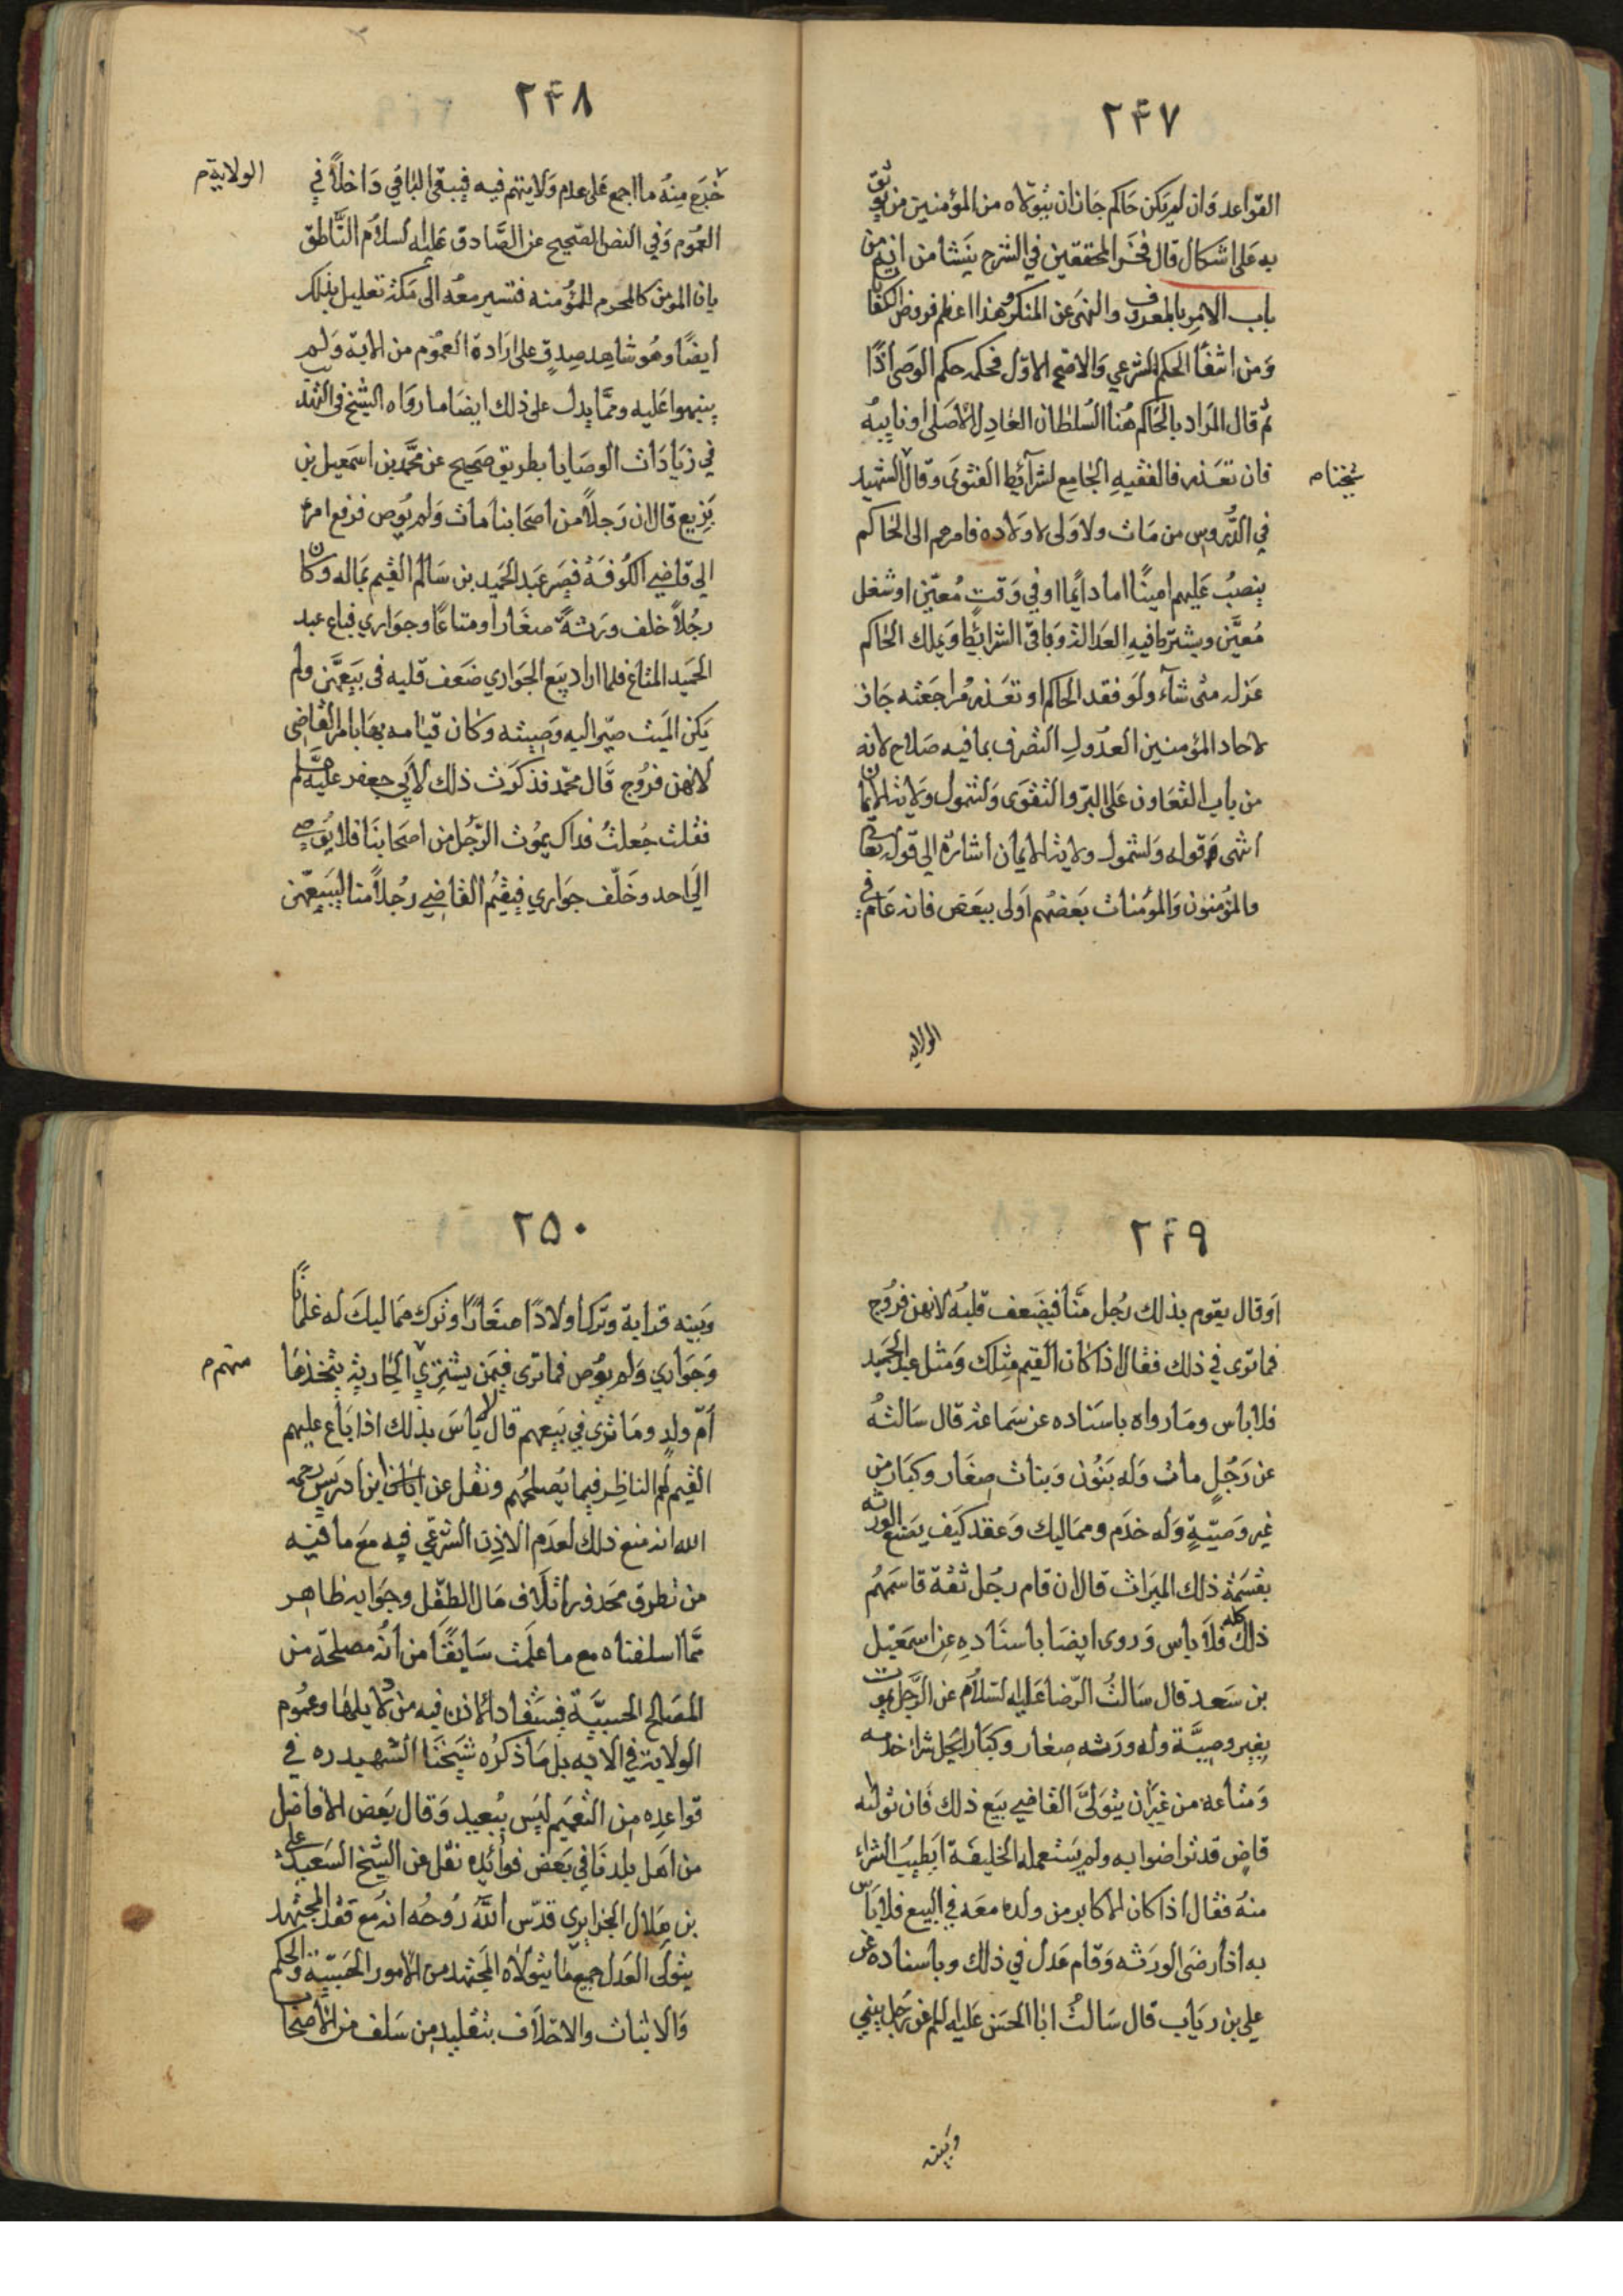 ٢٤٧
القواعد وان لم يكن حاكم جاز ان يتولاه من المؤمنين من يوثق
به على اشكال قال فخر المحققين في الشرح ينشا من انه من
باب الامر بالمعروف والنهى عن المنكر وهذا اعظم فروض الكفايا
ومن انتفا الحكم الشرعي والاصح الاول فحكمه حكم الوصى اذًا
ثم قال المراد بالحاكم هنا السلطان العادل الاصلى او نايبه
فان تعذر فالفقيه الجامع لشرآئط الفتوى وقال الشهيد
شيخنا م
في الدروس من مات ولا ولى لاولاده فامرهم الى الحاكم
ينصب عليهم امينًا اما دايمًا او في وقت معيّن او شغل
معيّن ويشترط فيه العدالة وباقي الشرائط ويملك الحاكم
عزله متى شآء ولو فقد الحاكم او تعذر مراجعته جاز
لاحاد المؤمنين العدول التصرف بما فيه صلاح لانه
من باب التعاون على البرّ والتقوى ولشمول ولاية الايمان
انتهى وقوله ولشمول ولاية الايمان اشارة الى قوله تعالى
والمؤمنون والمؤمنات بعضهم اولى ببعض فانه عام في
الولايه
٢٤٨
خرج منه ما اجمع على عدم ولايتهم فيه فيبقى الباقي داخلاً في
الولاية م
العموم وفي النص الصحيح عن الصّادق عليه السلام النّاطق
بان المومن كالمحرم للمؤمنه فتسير معه الى مكة تعليل بذلك
ايضًا وهو شاهد صدق على ارادة العموم من الاية ولم
ينبهوا عليه وممّا يدل على ذلك ايضا ما رواه الشيخ في التهذيب
في زيادات الوصايا بطريق صحيح عن محمّد بن اسمعيل بن
بزيع قال ان رجلاً من اصحابنا مات ولم يوص فرفع امره
الى قاضي الكوفة فصير عبد الحميد بن سالم القيم بماله وكان
رجلاً خلف ورثة صغارا ومتاعًا وجواري فباع عبد
الحميد المتاع فلما اراد بيع الجواري ضعف قلبه فى بيعهّن ولم
يكن الميت صيّر اليه وصيته وكان قيامه بها بامر القاضى
لانهن فروج قال محمد فذكرت ذلك لابي جعفر عليه السلم
فقلت جعلت فداك يموت الرّجل من اصحابنا فلا يوصي
الى احد وخلّف جواري فيقيم القاضي رجلاً منا ليبيعهّن
٢٤٩
او قال يقوم بذلك رجل منّا فيضعف قلبه لانهن فروج
فما ترى في ذلك فقال اذا كان القيم مثلك ومثل عبد الحميد
فلا باس وما رواه باسناده عن سماعة قال سالته
عن رجل مات وله بنون وبنات صغار وكبار من
غير وصيّةٍ وله خدم ومماليك وعقد كيف يصنع الورثه
بقسمة ذلك الميراث قال ان قام رجل ثقة قاسمهم
ذلك كله فلا باس وروى ايضا باسناده عن اسمعيل
بن سعد قال سالت الرّضا عليه السّلام عن الرّجل يموت
بغير وصيّة وله ورثه صغار وكبار ايحل شراء خدمه
ومتاعه من غير ان يتولىّ القاضي بيع ذلك فان تولاه
قاضٍ قد تراضوا به ولم يستعمله الخليفة ايطيب الشراء
منه فقال اذا كان الاكابر من ولده معه في البيع فلا باس
به اذا رضى الورثه وقام عدل في ذلك وباسناده عن
علي بن رياب قال سالت ابا الحسن عليه السلم عن رجل بيني
وبينه
٢٥٠
وبينه قرابة وترك اولادًا صغارًا وترك مماليك له غلمانًا
وجواري ولم يوص فما ترى فيمن يشتري الجارية يتخذها
منهم م
امّ ولد وما ترى في بيعهم قال لا باس بذلك اذا باع عليهم
القيم لهم الناظر فيما يصلحهم ونقل عن ابن ادريس رحمه
الله انه منع ذلك لعدم الاذن الشرعي فيه مع ما فيه
من تطرق محذور اتلاف مال الطفل وجوابه ظاهر
ممّا اسلفناه مع ما علمت سابقًا من انه مصلحة من
المصالح الحسبيّة فيستفاد الاذن فيه من دلايلها وعموم
الولاية في الايه بل ما ذكره شيخنا الشهيد ره في
قواعده من التعميم ليس ببعيد وقال بعض الافاضل
من اهل بلدنا في بعض فوائده نقل عن الشيخ السّعيد على
بن هلال الجزايري قدّس الله روحه انه مع فقد المجتهد
يتولى العدل جميع ما يتولاه المجتهد من الامور الحسبيّة والحكم
والاثبات والاحلاف بتقليد من سلف من الاصحاب